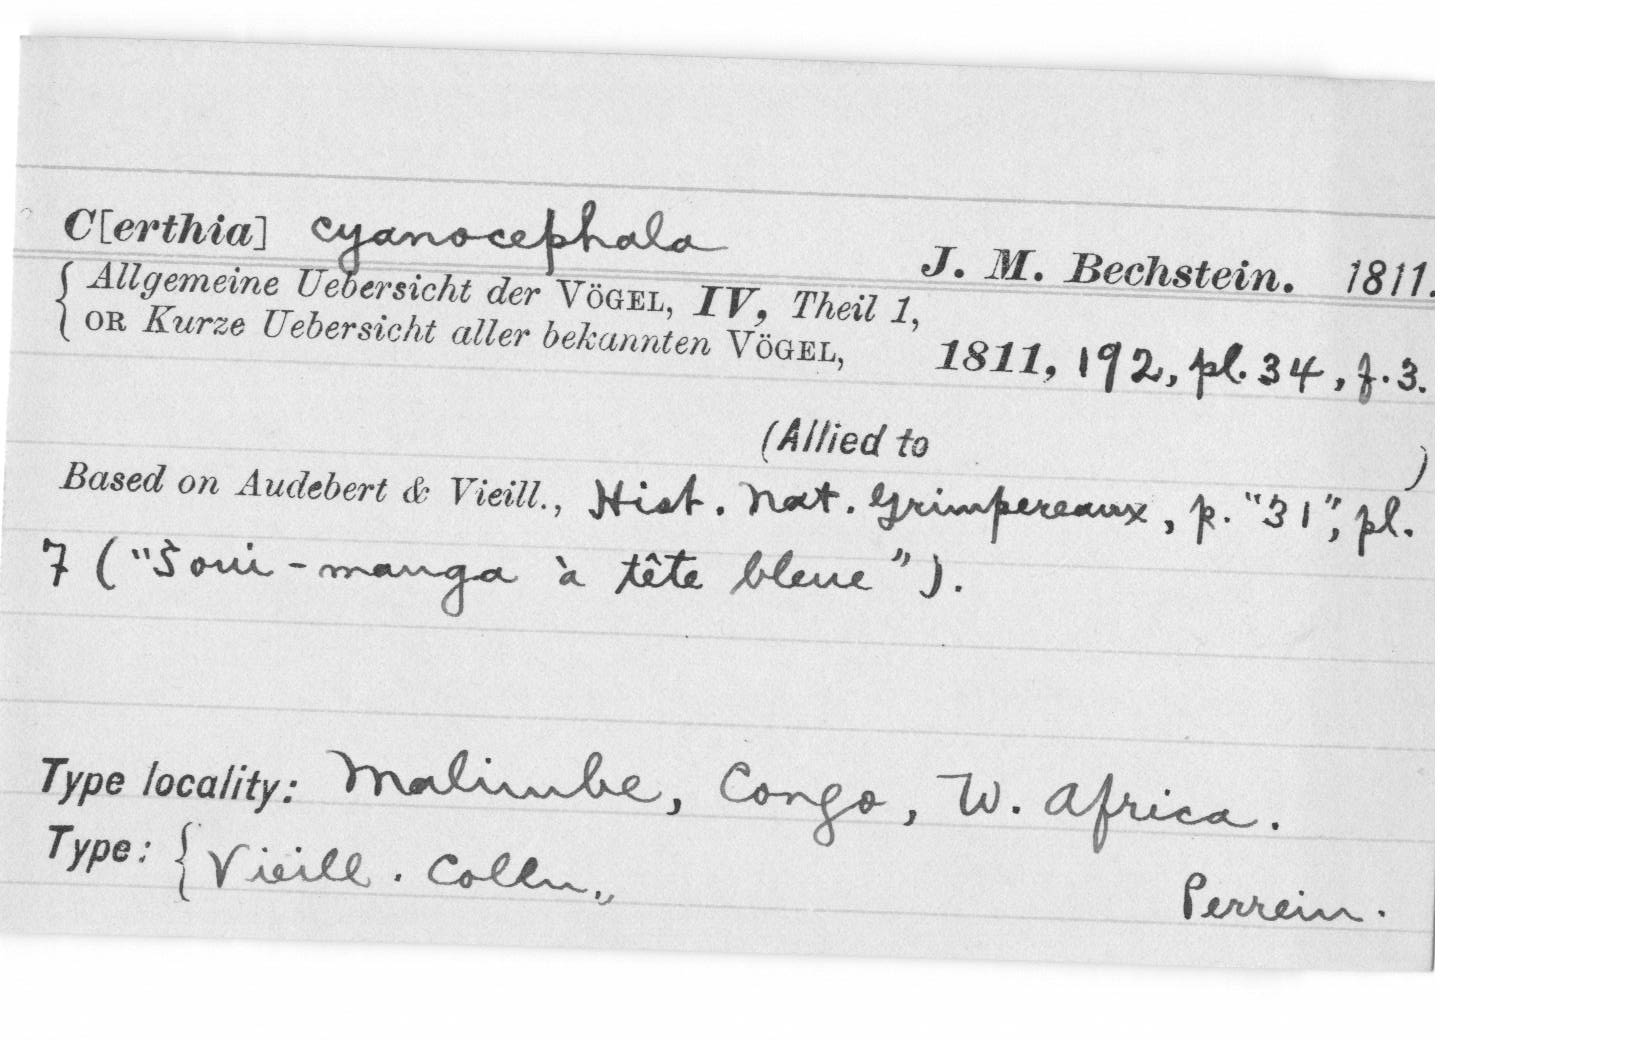 C[erthia] cyanocephala J. M. Bechstein. 1811.
{ Allgemeine Uebersicht der VÖGEL, IV, Theil 1,
OR Kurze Uebersicht aller bekannten VÖGEL, 1811, 192, pl. 34, f. 3.
(Allied to )
Based on Audebert & Vieill., Hist. Nat. Grimpereaux, p. "31", pl.
7 ("Soui-manga à tête bleue").
Type locality: Malimbe, Congo, W. Africa.
Type: { Vieill. Colln., Perrein.